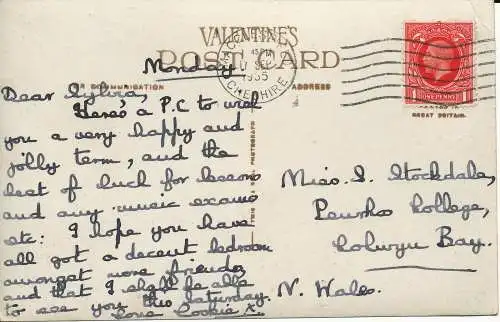 VALENTINE'S
POST CARD
FOR COMMUNICATION
ADDRESS
1935
CHESHIRE
ONE PENNY
GREAT BRITAIN.
THIS IS A REAL PHOTOGRAPH
Monday
Dear Sylvia,
Here's a P.C to wish
you a very happy and
jolly term, and the
best of luck for
and any music exams
etc: I hope you have
all got a decent bedroom
amongst more friends
and that I shall be able
to see you this Saturday.
Love Cookie X.
Miss. S. Stockdale,
Penrhos College,
Colwyn Bay.
N. Wales.